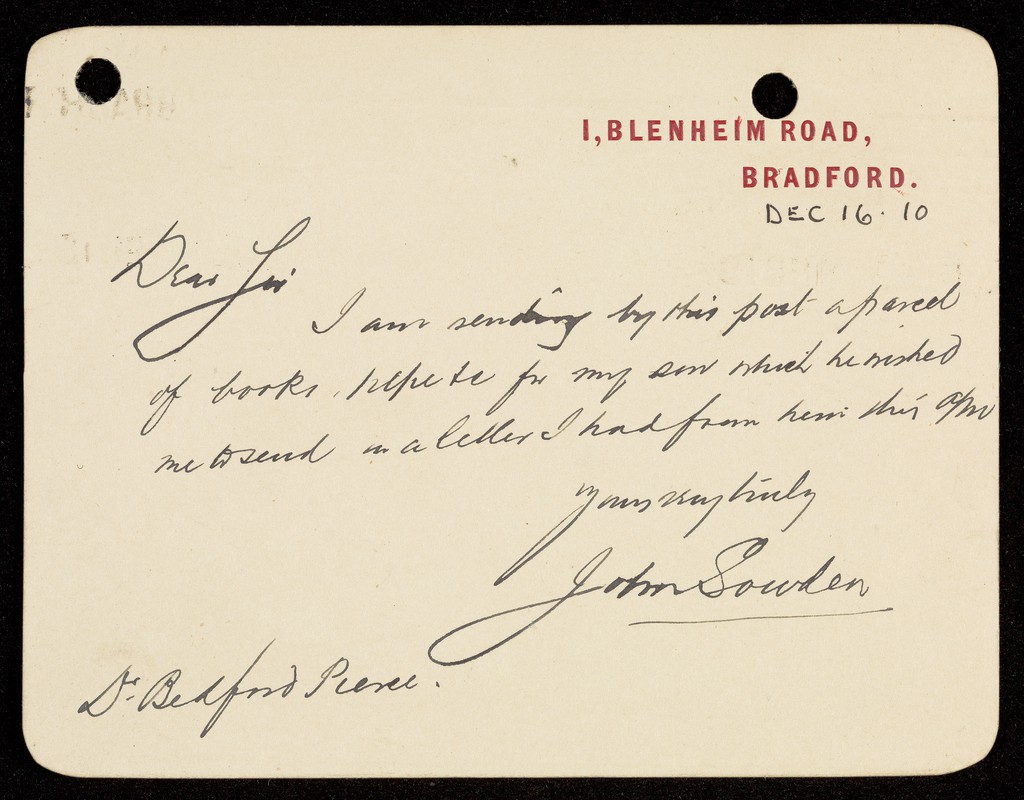 1, BLENHEIM ROAD,
BRADFORD.
DEC 16. 10
Dear Sir
I am sending by this post a parcel
of books, for my son which he wished
me to send in a letter I had from him this
Yours very truly
John Sowden
Dr. Bedford Pierce.